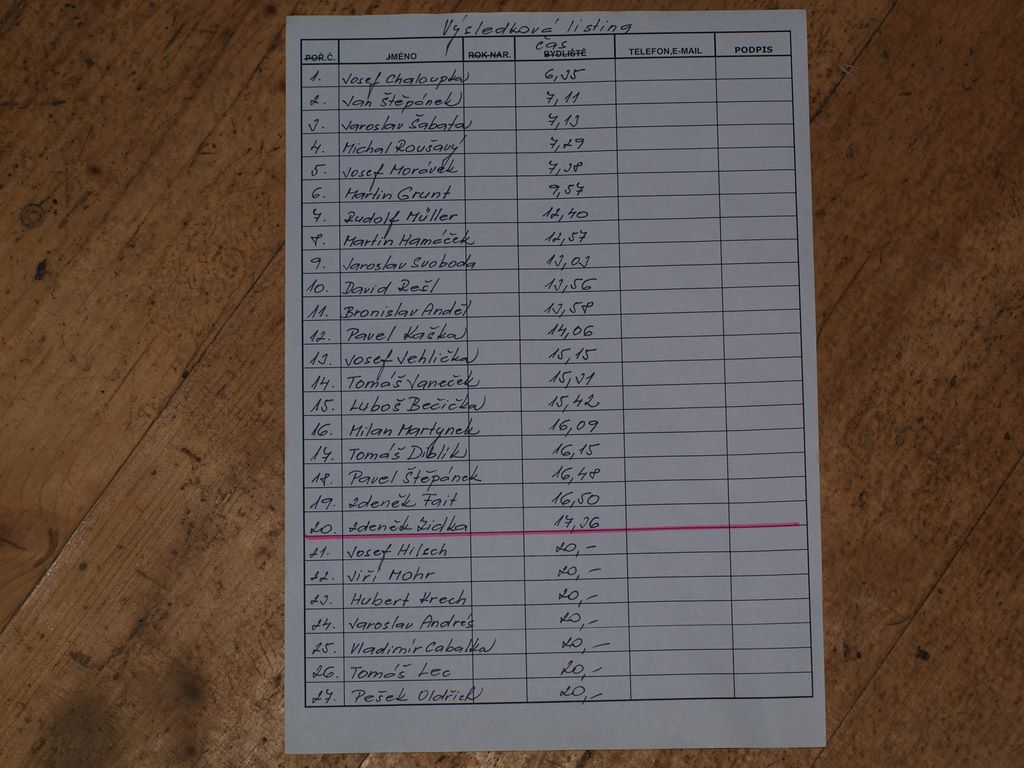 Výsledková listing
čas
POŘ.Č. JMÉNO ROK NAR. BYDLIŠTĚ TELEFON,E-MAIL PODPIS
1. Josef Chaloupka 6,35
2. Jan Štěpánek 7,11
3. Jaroslav Šabata 7,13
4. Michal Roušavý 7,29
5. Josef Morávek 7,38
6. Martin Grunt 9,57
7. Rudolf Müller 12,40
8. Martin Hamáček 12,57
9. Jaroslav Svoboda 13,03
10. David Rešl 13,56
11. Bronislav Anděl 13,58
12. Pavel Kaška 14,06
13. Josef Jehlička 15,15
14. Tomáš Janeček 15,31
15. Luboš Bečička 15,42
16. Milan Martynek 16,09
17. Tomáš Diblík 16,15
18. Pavel Štěpánek 16,48
19. Zdeněk Fait 16,50
20. Zdeněk Židka 17,36
21. Josef Hilsch 20,-
22. Jiří Mohr 20,-
23. Hubert Krech 20,-
24. Jaroslav Andres 20,-
25. Vladimír Cabalka 20,-
26. Tomáš Lec 20,-
27. Pešek Oldřich 20,-